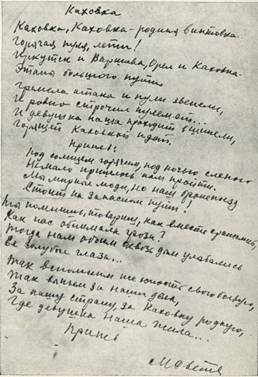 Каховка
Каховка, Каховка — родная винтовка
Горячая пуля, лети!
Иркутск и Варшава, Орел и Каховка
Этапы большого пути
Гремела атака и пули звенели,
И ровно строчил пулемет...
И девушка наша проходит в шинели,
Горящей Каховкой идет.
Припев:
Под солнцем горячим, под ночью слепою
Немало пришлось нам пройти.
Мы мирные люди, но наш бронепоезд
Стоит на запасном пути!
Ты помнишь, товарищ, как вместе сражались,
Как нас обнимала гроза?
Тогда нам обоим сквозь дым улыбались
Ее голубые глаза...
Так вспомним же юность свою боевую,
Так выпьем за наши дела,
За нашу страну, за Каховку родную,
Где девушка наша жила...
Припев
М. Светл